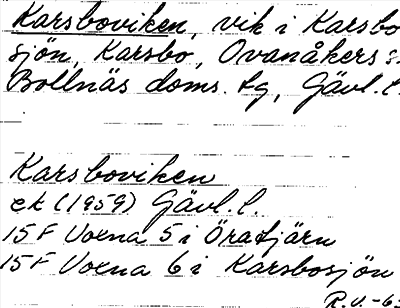 Karsboviken, vik i Karsbo
sjön, Karsbo, Ovanåkers s
Bollnäs doms. fg, Gävl. l.
Karsboviken
ek (1959) Gävl. l.
15 F Voxna 5 i Öratjärn
15 F Voxna 6 i Karsbosjön
R.U. -6